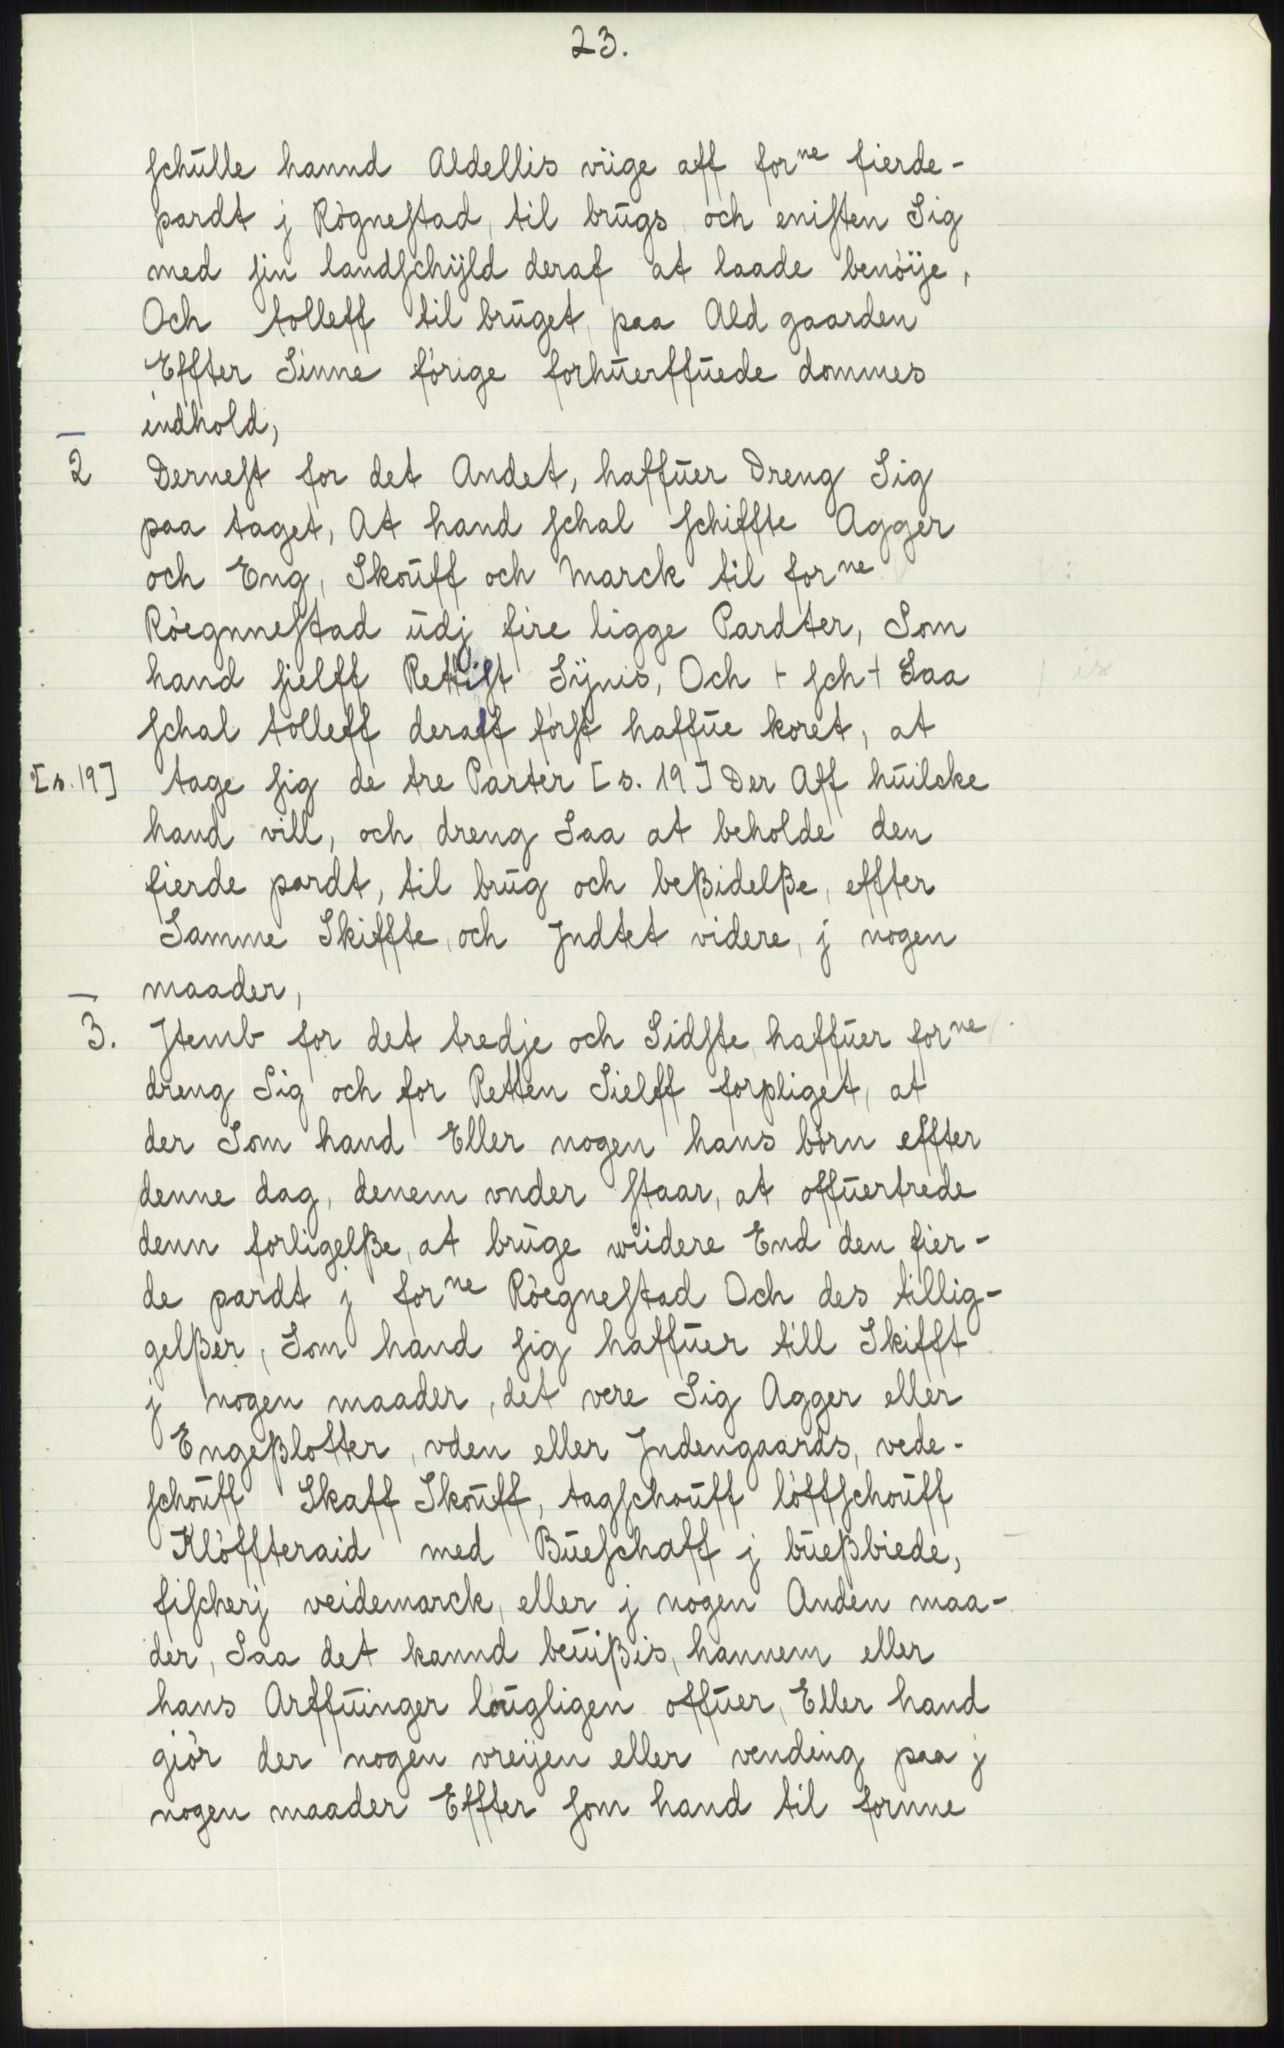 23.
schulle hannd Aldellis viige aff for<sup>ne</sup> fierde-
pardt j Rògnestad, til brugs och enisten Sig
med sin landschÿld deraf at laade benòije,
Och tolleff til bruget, paa Ald gaarden
Effter Sinne fòrige forhuerffuede dommes
indhold,
2 Dernest for det Andet, haffuer Dreng Sig
paa taget, At hand schal schiffte Agger
och Eng, Skouff och Marck til for<sup>ne</sup>
Ròegnnestad udj fire ligge Pardter, Som
hand sielff Rettist Sÿnis, Och + sch + Saa
schal tolleff deraff fòrst haffue koret, at
[s. 19] tage sig de tre Parter [s. 19] Der Aff huilcke
hand vill, och dreng Saa at beholde den
fierde pardt, til brug och beßidelße, effter
Samme Skiffte, och Jndtet videre, j nogen
maader,
3. Jtemb for det tredje och Sidste haffuer for<sup>ne</sup>
dreng Sig och for Retten Sielff forpliget, at
der Som hand Eller nogen hans bòrn effter
denne dag, denem vnder staar, at offuertrede
denn forligelße, at bruge wiidere End den fier-
de pardt j for<sup>ne</sup> Ròegnestad Och des tillig-
gelßer, Som hand sig haffuer till Skifft
j nogen maader, det vere Sig Agger eller
Engeßlotter, vden eller Jndengaards, vede-
schouff Skaff Skouff, tagschouff lòffschouff
Klòffteraid med Bueschaff j bueßbiede,
fischerj veidemarck, eller j nogen Anden maa-
der, Saa det kannd beuißis, hannem eller
hans Arffuinger lougligen offuer, Eller hand
giòr der nogen vreijen eller vending paa j
nogen maader Effter som hand til fornne